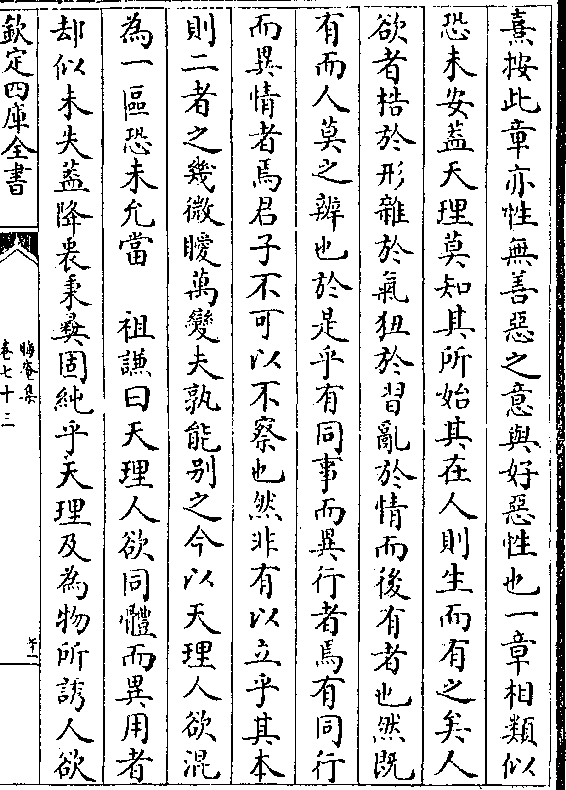 熹按此章亦性無善惡之意與好惡性也一章相類似
恐未安蓋天理莫知其所始其在人則生而有之矣人
欲者梏於形雜於氣狃於習亂於情而後有者也然既
有而人莫之辨也於是乎有同事而異行者焉有同行
而異情者焉君子不可以不察也然非有以立乎其本
則二者之幾微曖萬變夫孰能別之今以天理人欲混
為一區恐未允當　祖謙曰天理人欲同體而異用者
却似未失蓋降衷秉彝固純乎天理及為物所誘人欲
欽定四庫全書
晦庵集
卷七十三